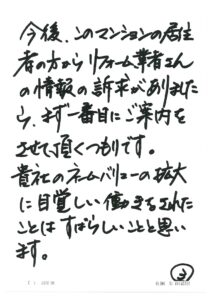 今後、このマンションの居住
者の方からリフォーム業者さん
の情報の訴求がありました
ら、まず一番目にご案内を
させて頂くつもりです。
貴社のネームバリューの拡大
に目覚しい働きをされた
ことはすばらしいことと思い
ます。
③